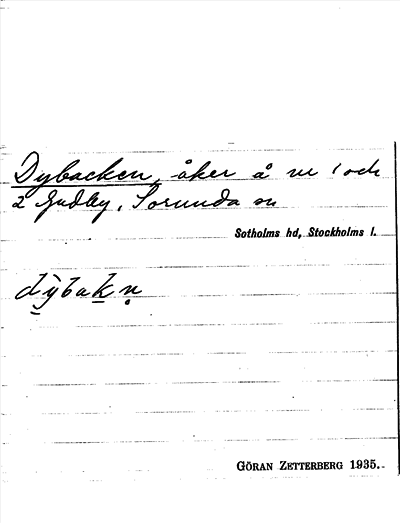 Dybacken, åker å nr 1 och
2 Gudby, Sorunda sn
Sotholms hd, Stockholms l.
dy̠̋bak̠n̥
GÖRAN ZETTERBERG 1935.